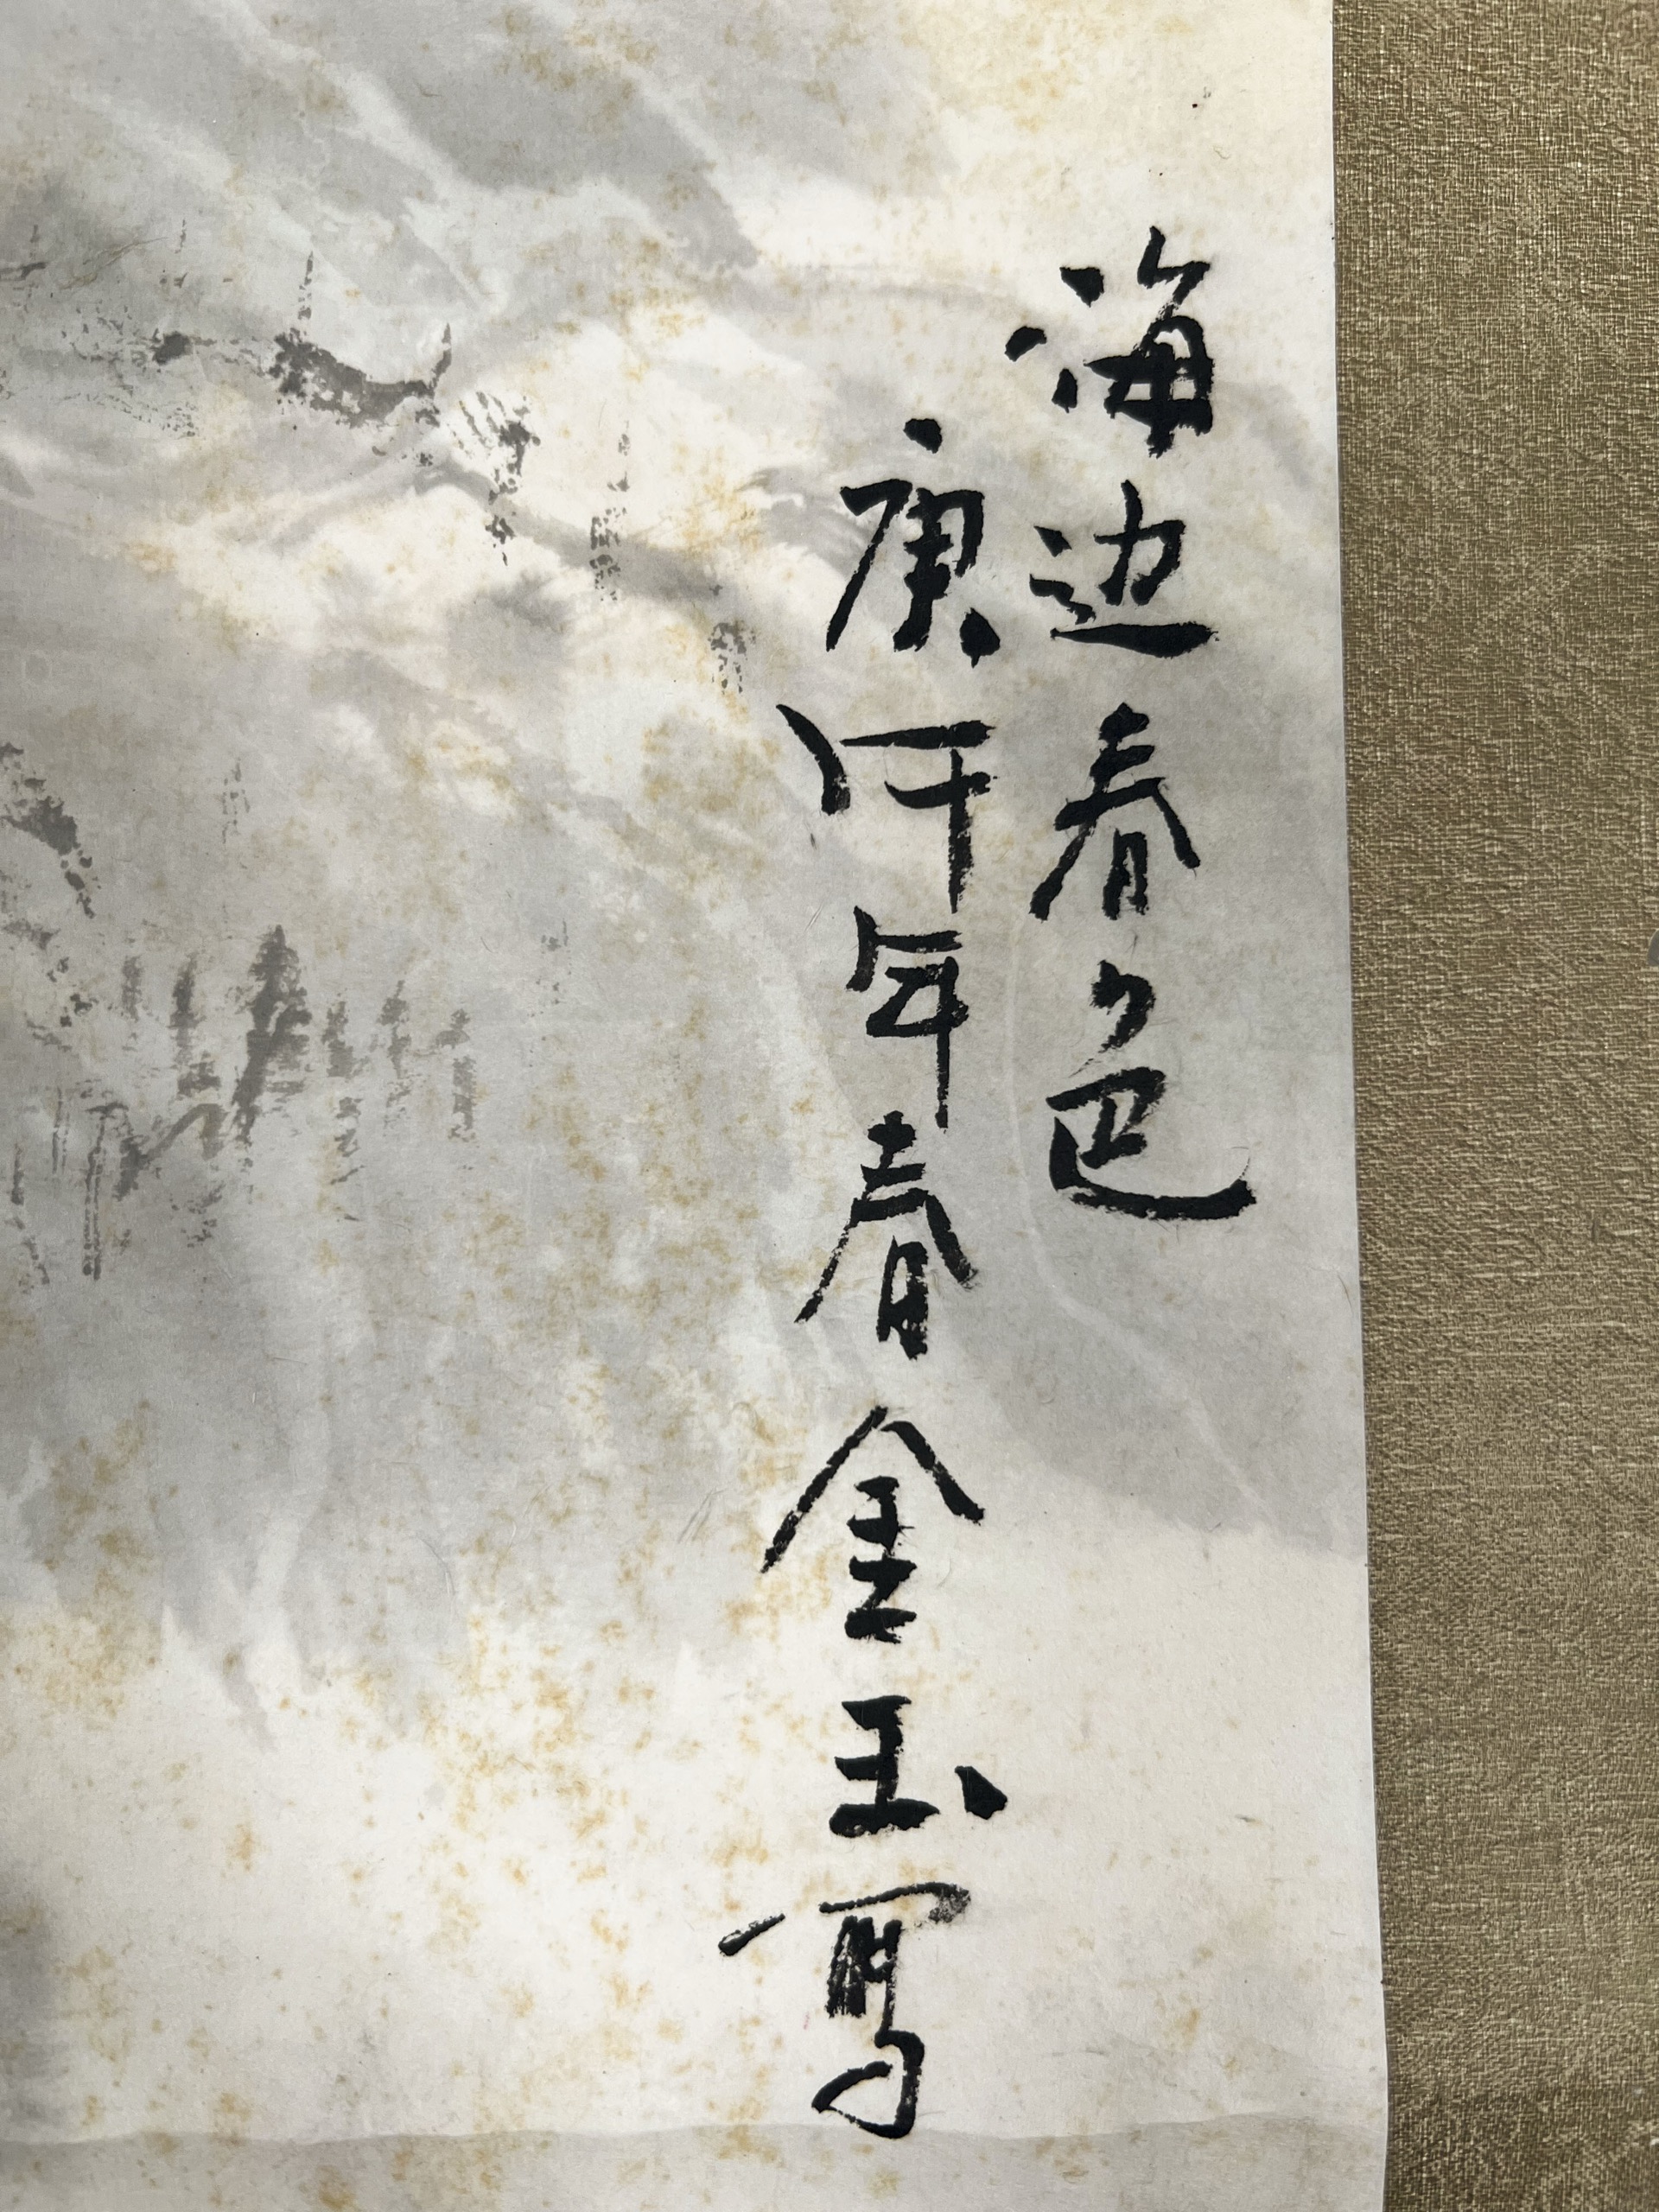 海边春色
庚午年春金玉写